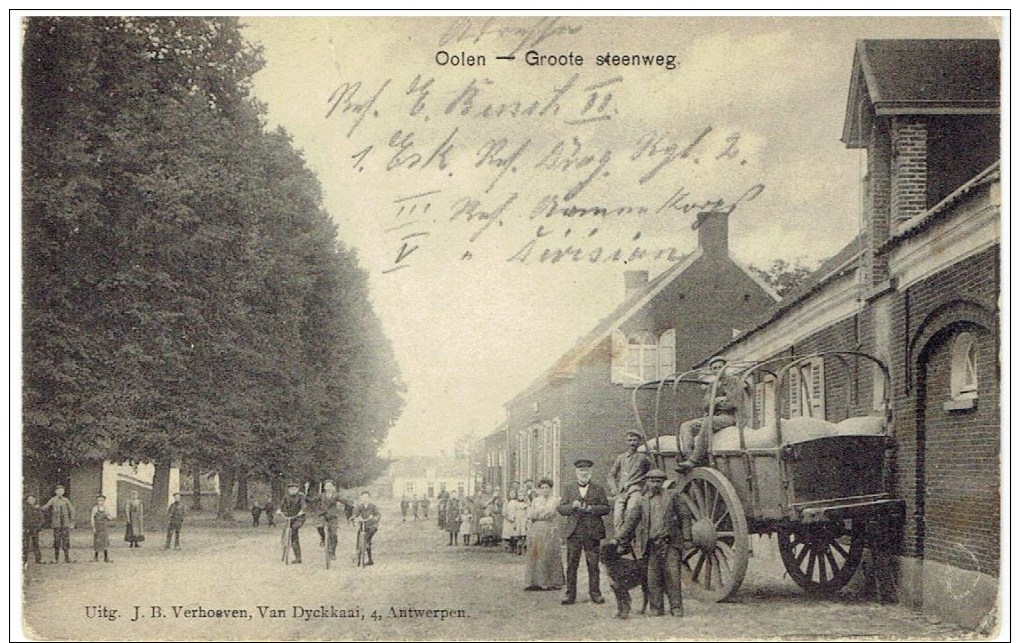 Oolen — Groote steenweg.
Res. E.
1. Esk. Res. Drag. Rgt. 2.
III. Res. Armee Korps
V " Division
Uitg. J. B. Verhoeven, Van Dyckkaai, 4, Antwerpen.